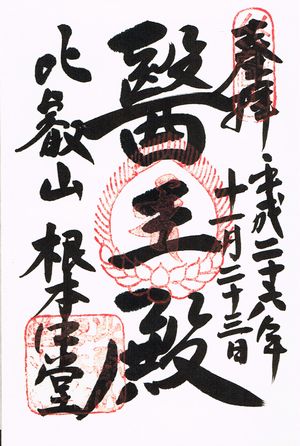 奉拝
平成二十六年
十一月二十三日
醫王殿
比叡山 根本中堂